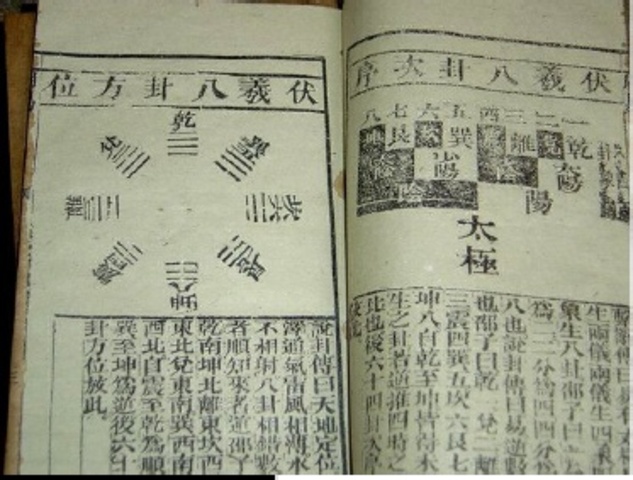 伏羲八卦次序
一 二 三 四 五 六 七 八
乾 兌 離 震 巽 坎 艮 坤
太陽 少陰 少陽 太陰
陽 陰
太極
生兩儀兩儀生四象
象生八卦邵子曰一分
為二二分為四四分為
八也說卦傳曰易逆數
也邵子曰乾一兌二離
三震四巽五坎六艮七
坤八自乾至坤皆得未
生之卦若逆推四時之
比也後六十四卦次序
放此
伏羲八卦方位
乾
兌
巽
離
坎
震
艮
坤
說卦傳曰天地定位
澤通氣雷風相薄水
不相射八卦相錯數
者順知來者逆邵子
乾南坤北離東坎西
東北兌東南巽西南
西北自震至乾為順
巽至坤為逆後六十
卦方位放此